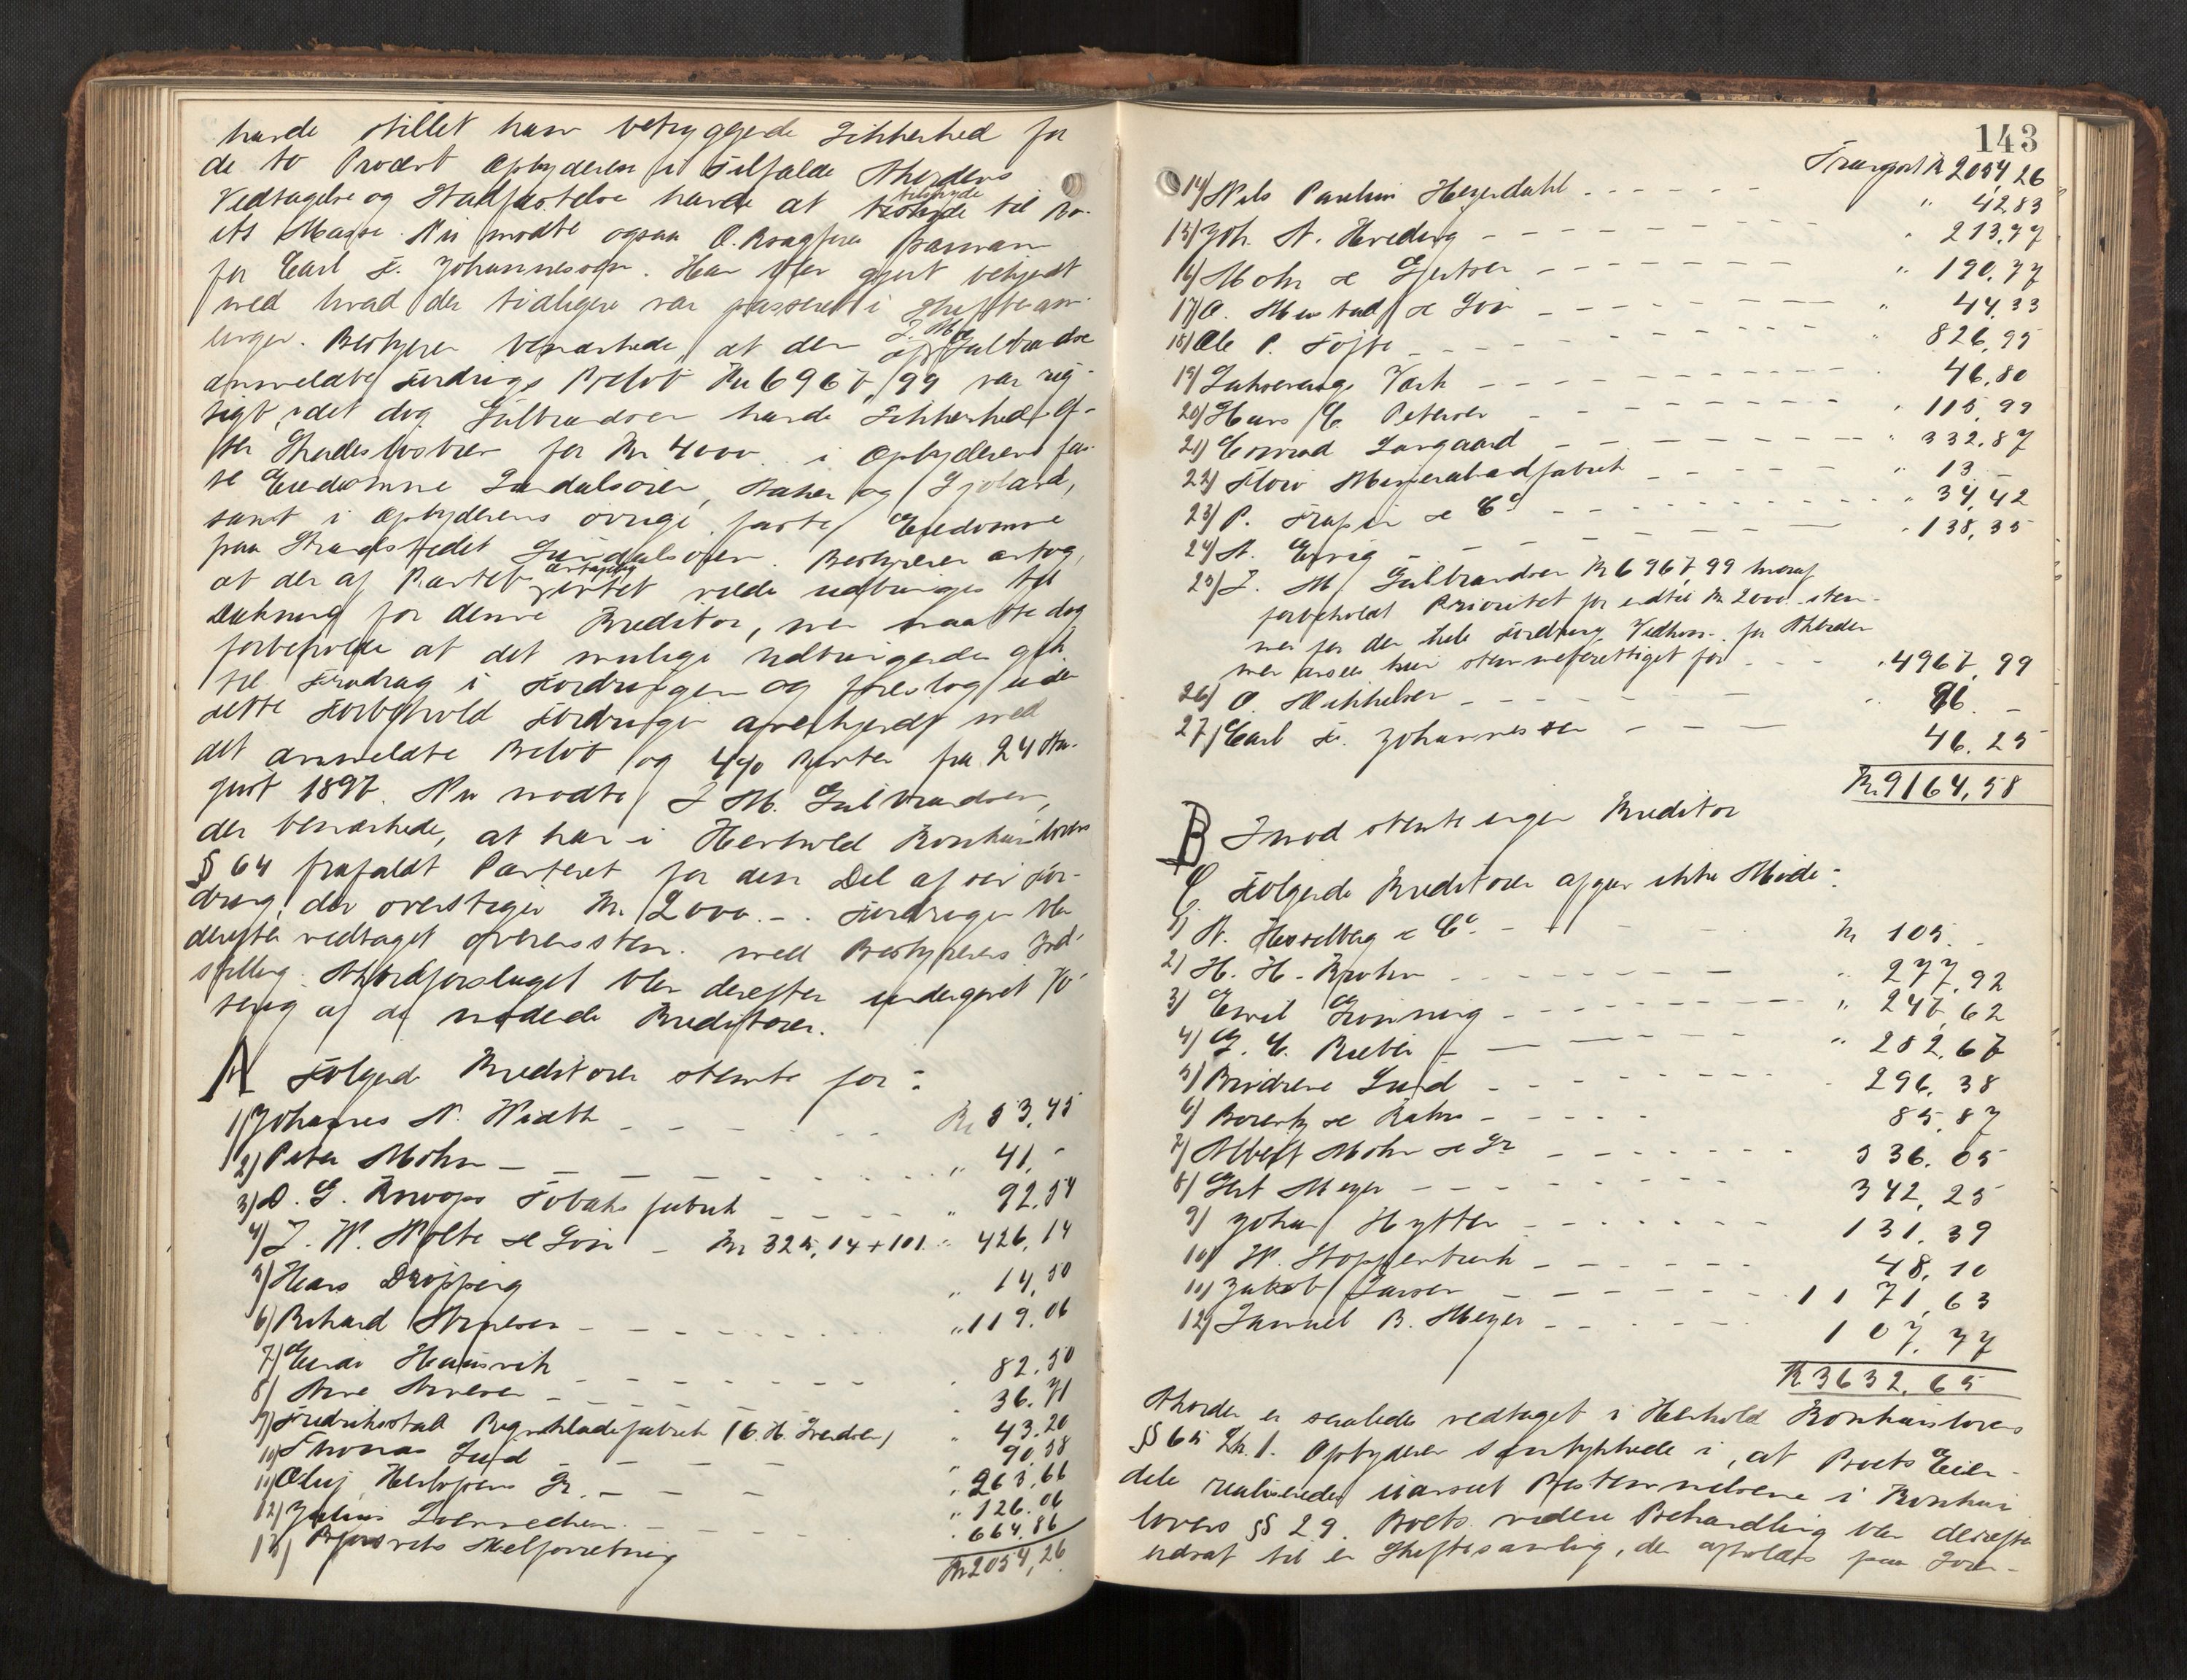 havde stillet ham betryggende Sikkerhed for
de to Procent Opbyderen i Tilfælde Akkordens
Vedtagelse og Stadfæstelse havde at tilskyde
til Bo-
ets Masse. Nu mødte ogsaa O.
for Carl F. Johannessen. Han blev gjort bekjendt
med hvad der tidligere var passeret i Skiftesam-
lingen. Bestyreren bemærkede, at den af J. M. Gulbrandsen
anmeldte Fordrings Beløb Kr 6967,99 var rig-
tigt, idet dog Gulbrandsen havde Sikkerhed ef-
ter Skadesløsbrev for Kr 4000 i Opbyderens fa-
te Eiendomme Lærdalsøren, og
samt i Opbyderens øvrige faste Eiendomme
paa Strandstedet Lærdalsøren. Bestyreren antog,
at der af Pantet antagelig intet vilde udbringes til
Dækning for denne Kreditor, men maatte dog
forbeholde at det mulige udbringende gik
til Fradrag i Fordringen og foreslog under
dette Forbehold Fordringen anerkjendt med
det anmeldte Beløb og 4% Renter fra 24 Au-
gust 1897. Nu mødte J. M. Gulbrandsen,
der bemærkede, at han i Henhold Konkurslovens
§ 64 frafaldt Panteret for den Del af sin For-
dring, der overstiger Kr. 2000.-. Fordringen blev
derefter vedtaget overensstem. med Bestyrerens Ind-
stilling. Akkordforslaget blev derefter undergivet Vo-
tering af de mødende Kreditorer.
A Følgende Kreditorer stemte for:
1) Johannes N. Wiath - - - Kr 53,45
2) Peter Mohn - - - " 41,-
3) D. G. Knoops Tobaksfabrik - - - " 92,54
4) J. W. Holte & Søn - Kr 325,14 + 101 " 426,14
5) Hans Dropping " 14,50
6) Rikard - - - " 119,06
7) - - - 82,50
8) Arne - - - 36,71
9) Fredriksstad fabrik (C. H. ) " 43,20
10) Thomas Lund - - - " 90,58
11) Oluf Herlofsens Jr. - - - " 263,66
12) Julius - - - " 126,06
13) Melforretning " 664,86
Kr 2054,26
143
Transport Kr 2054,26
14) Nils Paulsen Heyerdahl - - - " 42,83
15) Joh. N. - - - " 213,77
16) Mohn & Gjertsen - - - " 190,77
17) O. & Søn - - - " 44,33
18) Ole P. - - - " 826,95
19) Værk - - - 46,80
20) Hans C. Petersen - - - " 115,99
21) Conrad Langaard - - - " 332,87
22) Florø Mineralvandfabrik - - - " 13 -
23) P. & Co - - - " 34,42
24) - - - " 138,35
25) J. M. Gulbrandsen Kr 6967,99 hvoraf
forbeholdt Prioritet for indtil Kr 2000 stem-
mer for den hele Fordring Vedkom. for Akkorden
men ansees kun stemmeberettiget for - - - " 4967,99
26) O. Mikkelsen - - - " 96. -
27) Carl F. Johannessen - - - 46,25
Kr. 9164,58
B Imod stemte ingen Kreditor
C. Følgende Kreditorer afgav ikke Møde:
1) N. Hesselberg & Co. - - - Kr 105. -
2) H. H. Krohn - - - " 277,92
3) Emil Grønning - - - " 247,62
4) G. C. Rieber - - - " 282,67
5) Brødrene Lund - - - 296,38
6) & - - - 85,87
7) Albert Mohn & Jr - - - 536,05
8) Gert Meyer - - - 342,25
9) Johan Hytten - - - 131,39
10) W. Stoppenbrink - - - 48,10
11) Jakob Larsen - - - 1171,63
12) Samuel B. Meyer - - - 107,77
Kr. 3632,65
Akkorden er saaledes vedtaget i Henhold Konkurslovens
§§ 65 Lit. 1. Opbyderen samtykkede i, at Boets Eien-
dele realiseredes uanseet Bestemmelserne i Konkurs
lovens §§ 29. Boets videre Behandling blev derefter
udsat til en Skiftesamling, der afholdes paa Soren-